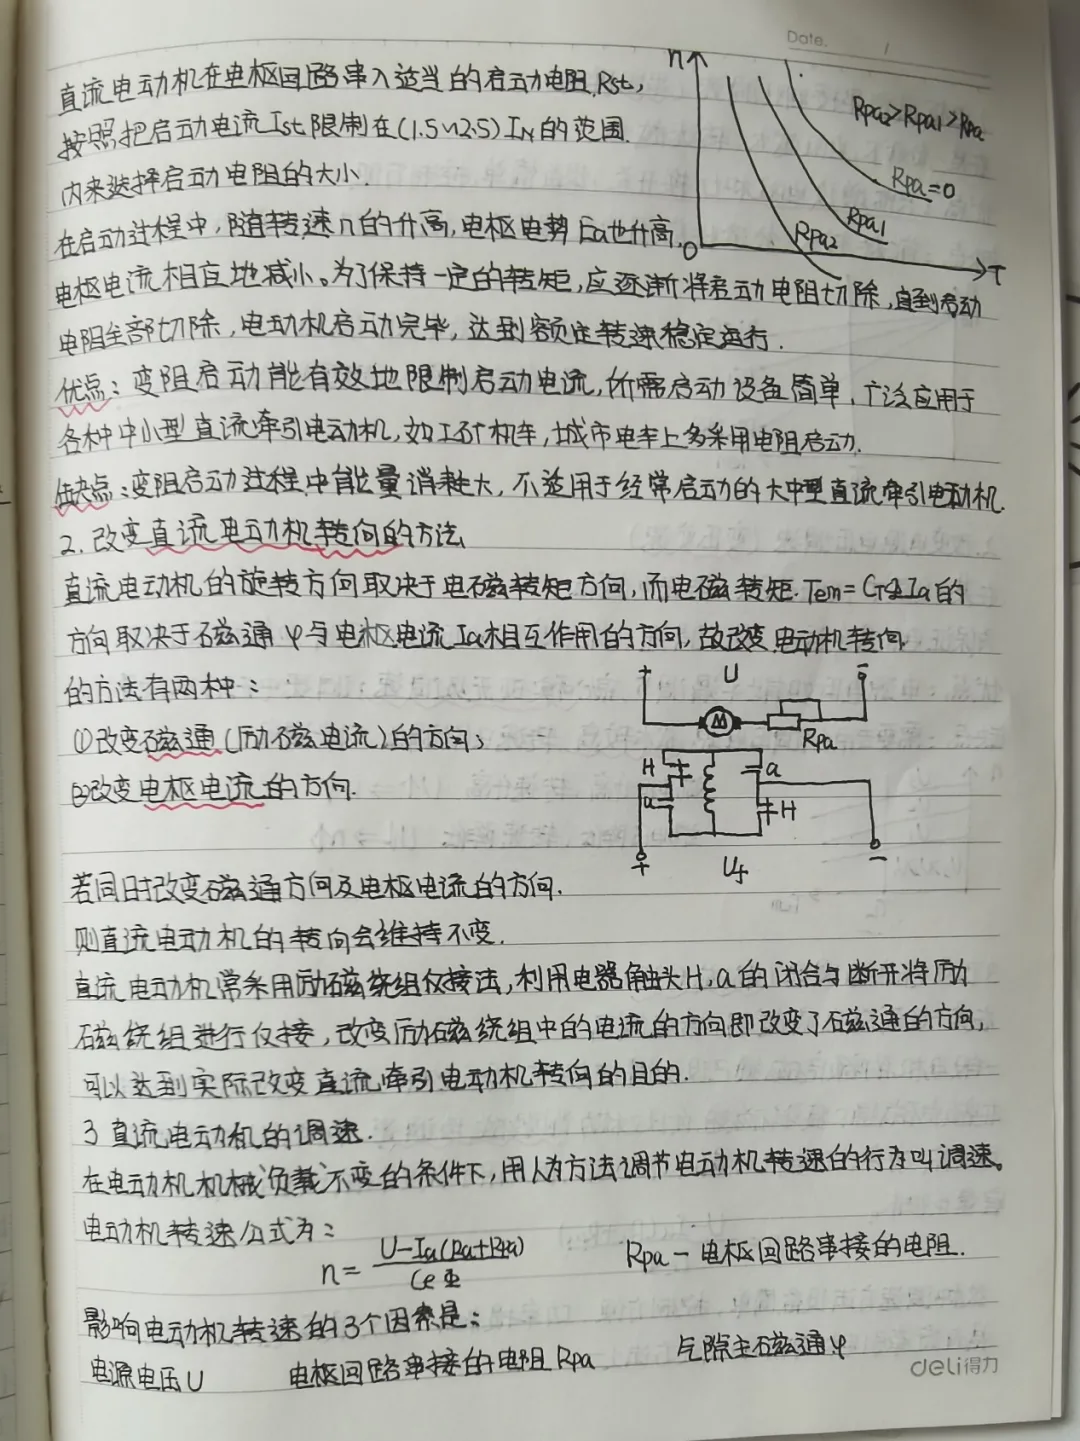 Date.
n
直流电动机在电枢回路串入适当的启动电阻Rst,
Rpa2>Rpa1>Rpa
按照把启动电流Ist限制在(1.5~2.5)IN的范围
Rpa=0
内来选择启动电阻的大小.
Rpa1
Rpa2
在启动过程中,随转速n的升高,电枢电势Ea也升高,
0
T
电枢电流相应地减小。为了保持一定的转矩,应逐渐将启动电阻切除,直到启动
电阻全部切除,电动机启动完毕,达到额定转速稳定运行.
优点:变阻启动能有效地限制启动电流,所需启动设备简单,广泛应用于
各种中小型直流牵引电动机,如工矿机车,城市电车上多采用电阻启动.
缺点:变阻启动过程中能量消耗大,不适用于经常启动的大中型直流牵引电动机.
2.改变直流电动机转向的方法
直流电动机的旋转方向取决于电磁转矩方向,而电磁转矩.Tem=CTΦIa的
方向取决于磁通φ与电枢电流Ia相互作用的方向,故改变电动机转向
的方法有两种:
+ U -
M
Rpa
①改变磁通(励磁电流)的方向;
H a
②改变电枢电流的方向.
a H
+ Uf -
若同时改变磁通方向及电枢电流的方向.
则直流电动机的转向会维持不变.
直流电动机常采用励磁绕组仅接法,利用电器触头H,a的闭合与断开将励
磁绕组进行仅接,改变励磁绕组中的电流的方向即改变了磁通的方向,
可以达到实际改变直流牵引电动机转向的目的.
3 直流电动机的调速.
在电动机机械负载不变的条件下,用人为方法调节电动机转速的行为叫调速。
电动机转速公式为:
n=U-Ia(Ra+Rpa)/CeΦ
Rpa-电枢回路串接的电阻.
影响电动机转速的3个因素是:
电源电压U 电枢回路串接的电阻Rpa 气隙主磁通φ
deli得力